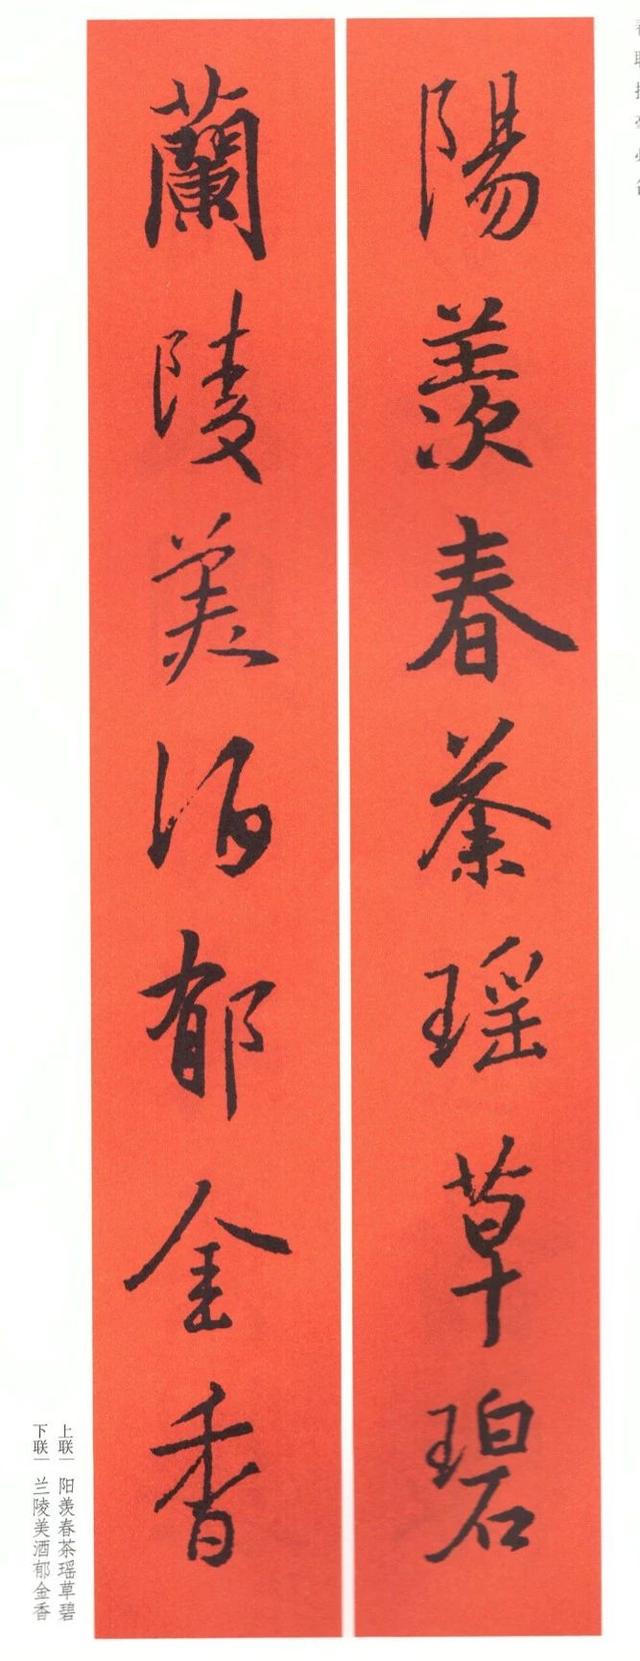 陽羨春茶瑶草碧
蘭陵美酒郁金香
上联｜阳羡春茶瑶草碧
下联｜兰陵美酒郁金香